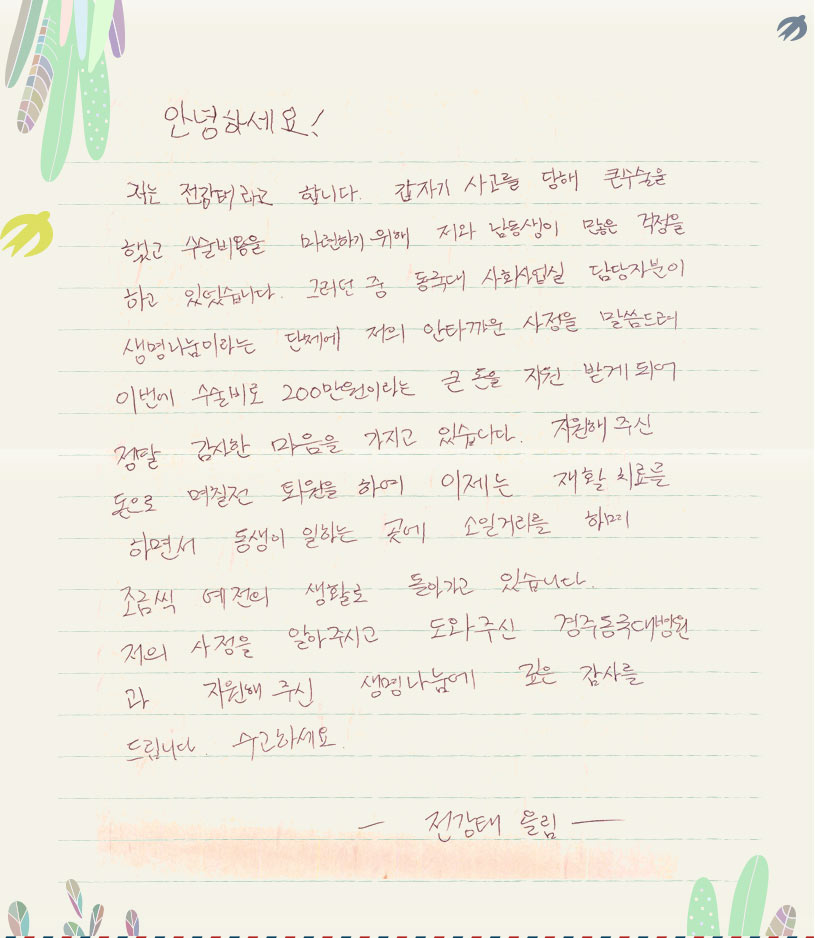 안녕하세요!
저는 전강태라고 합니다. 갑자기 사고를 당해 큰수술을
했고 수술비용을 마련하기 위해 저와 남동생이 많은 걱정을
하고 있었습니다. 그러던 중 동국대 사회사업실 담당자분이
생명나눔이라는 단체에 저의 안타까운 사정을 말씀드려
이번에 수술비로 200만원이라는 큰 돈을 지원 받게 되어
정말 감사한 마음을 가지고 있습니다. 지원해 주신
돈으로 며칠전 퇴원을 하여 이제는 재활 치료를
하면서 동생이 일하는 곳에 소일거리를 하며
조금씩 예전의 생활로 돌아가고 있습니다.
저의 사정을 알아주시고 도와주신 경주동국대병원
과 지원해 주신 생명나눔에 깊은 감사를
드립니다. 수고하세요.
- 전강태 올림 -